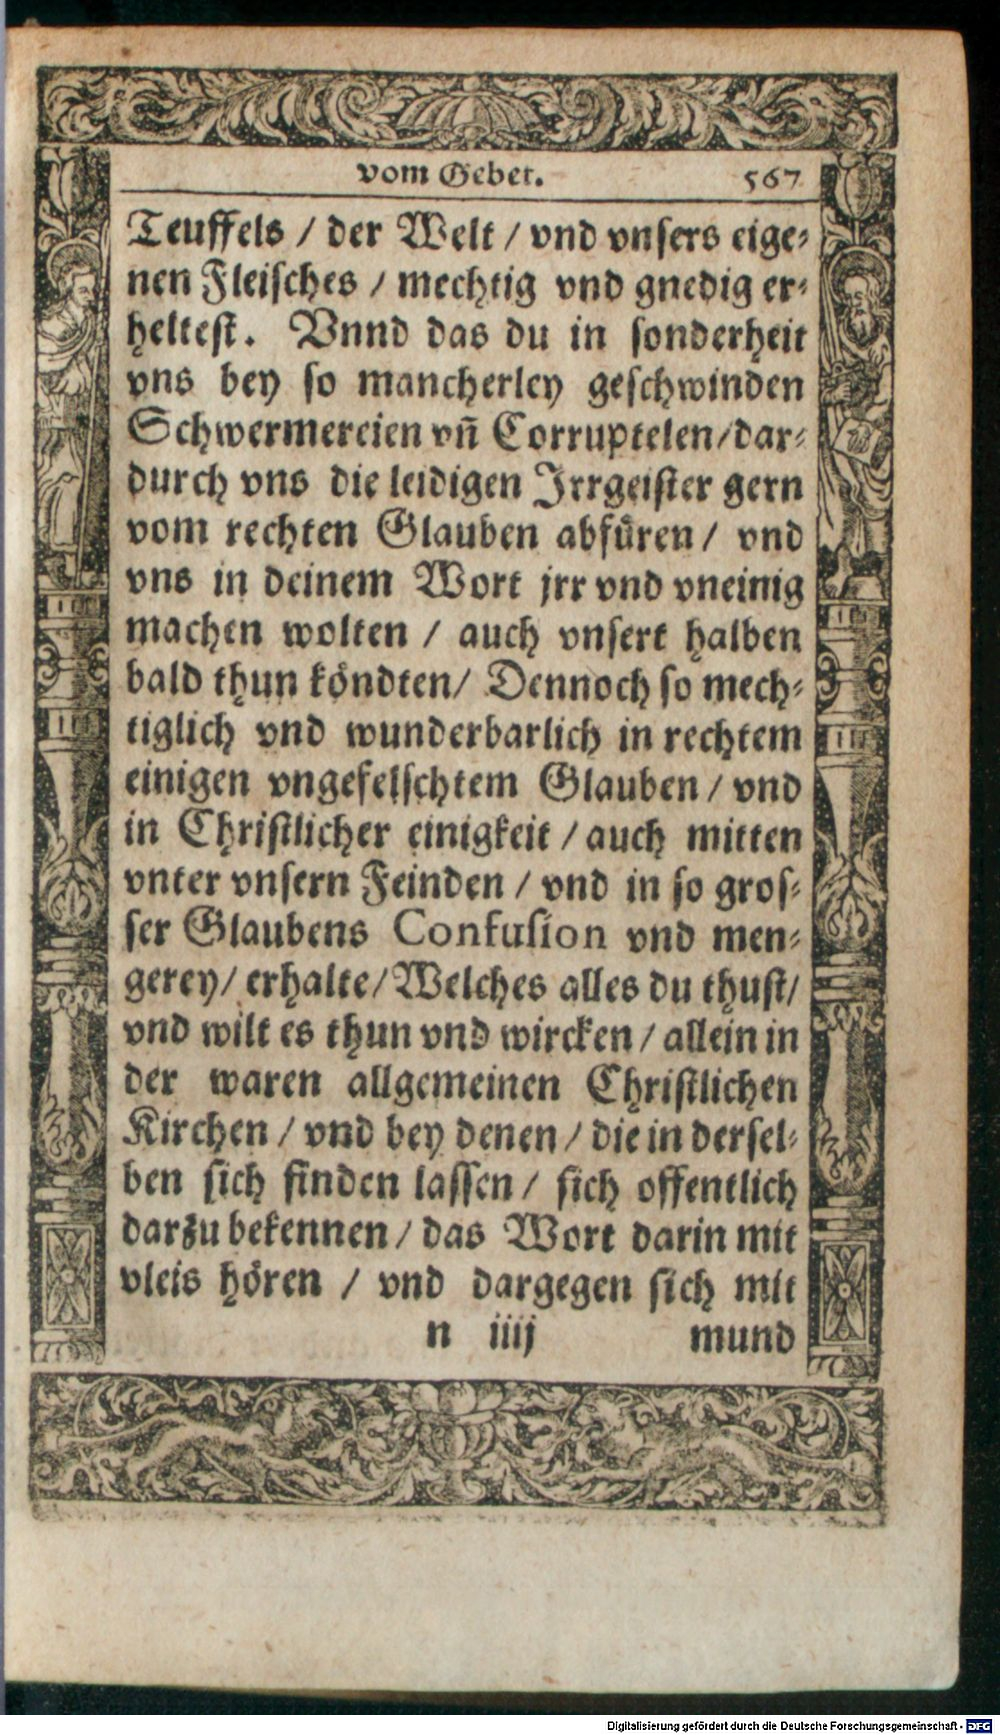 vom Gebet. 567
Teuffels / der Welt / vnd vnsers eige⸗
nen Fleisches / mechtig vnd gnedig er⸗
heltest. Vnnd das du in sonderheit
vns bey so mancherley geschwinden
Schwermereien vn̄ Corruptelen/dar⸗
durch vns die leidigen Jrrgeister gern
vom rechten Glauben abfüren / vnd
vns in deinem Wort jrr vnd vneinig
machen wolten / auch vnsert halben
bald thun köndten/ Dennoch so mech⸗
tiglich vnd wunderbarlich in rechtem
einigen vngefelschtem Glauben / vnd
in Christlicher einigkeit / auch mitten
vnter vnsern Feinden / vnd in so gros⸗
ser Glaubens Confusion vnd men⸗
gerey/ erhalte/Welches alles du thust/
vnd wilt es thun vnd wircken / allein in
der waren allgemeinen Christlichen
Kirchen / vnd bey denen / die in dersel⸗
ben sich finden lassen / sich offentlich
darzu bekennen / das Wort darin mit
vleis hören / vnd dargegen sich mit
n iiij mund
Digitalisierung gefördert durch die Deutsche Forschungsgemeinschaft - DFG